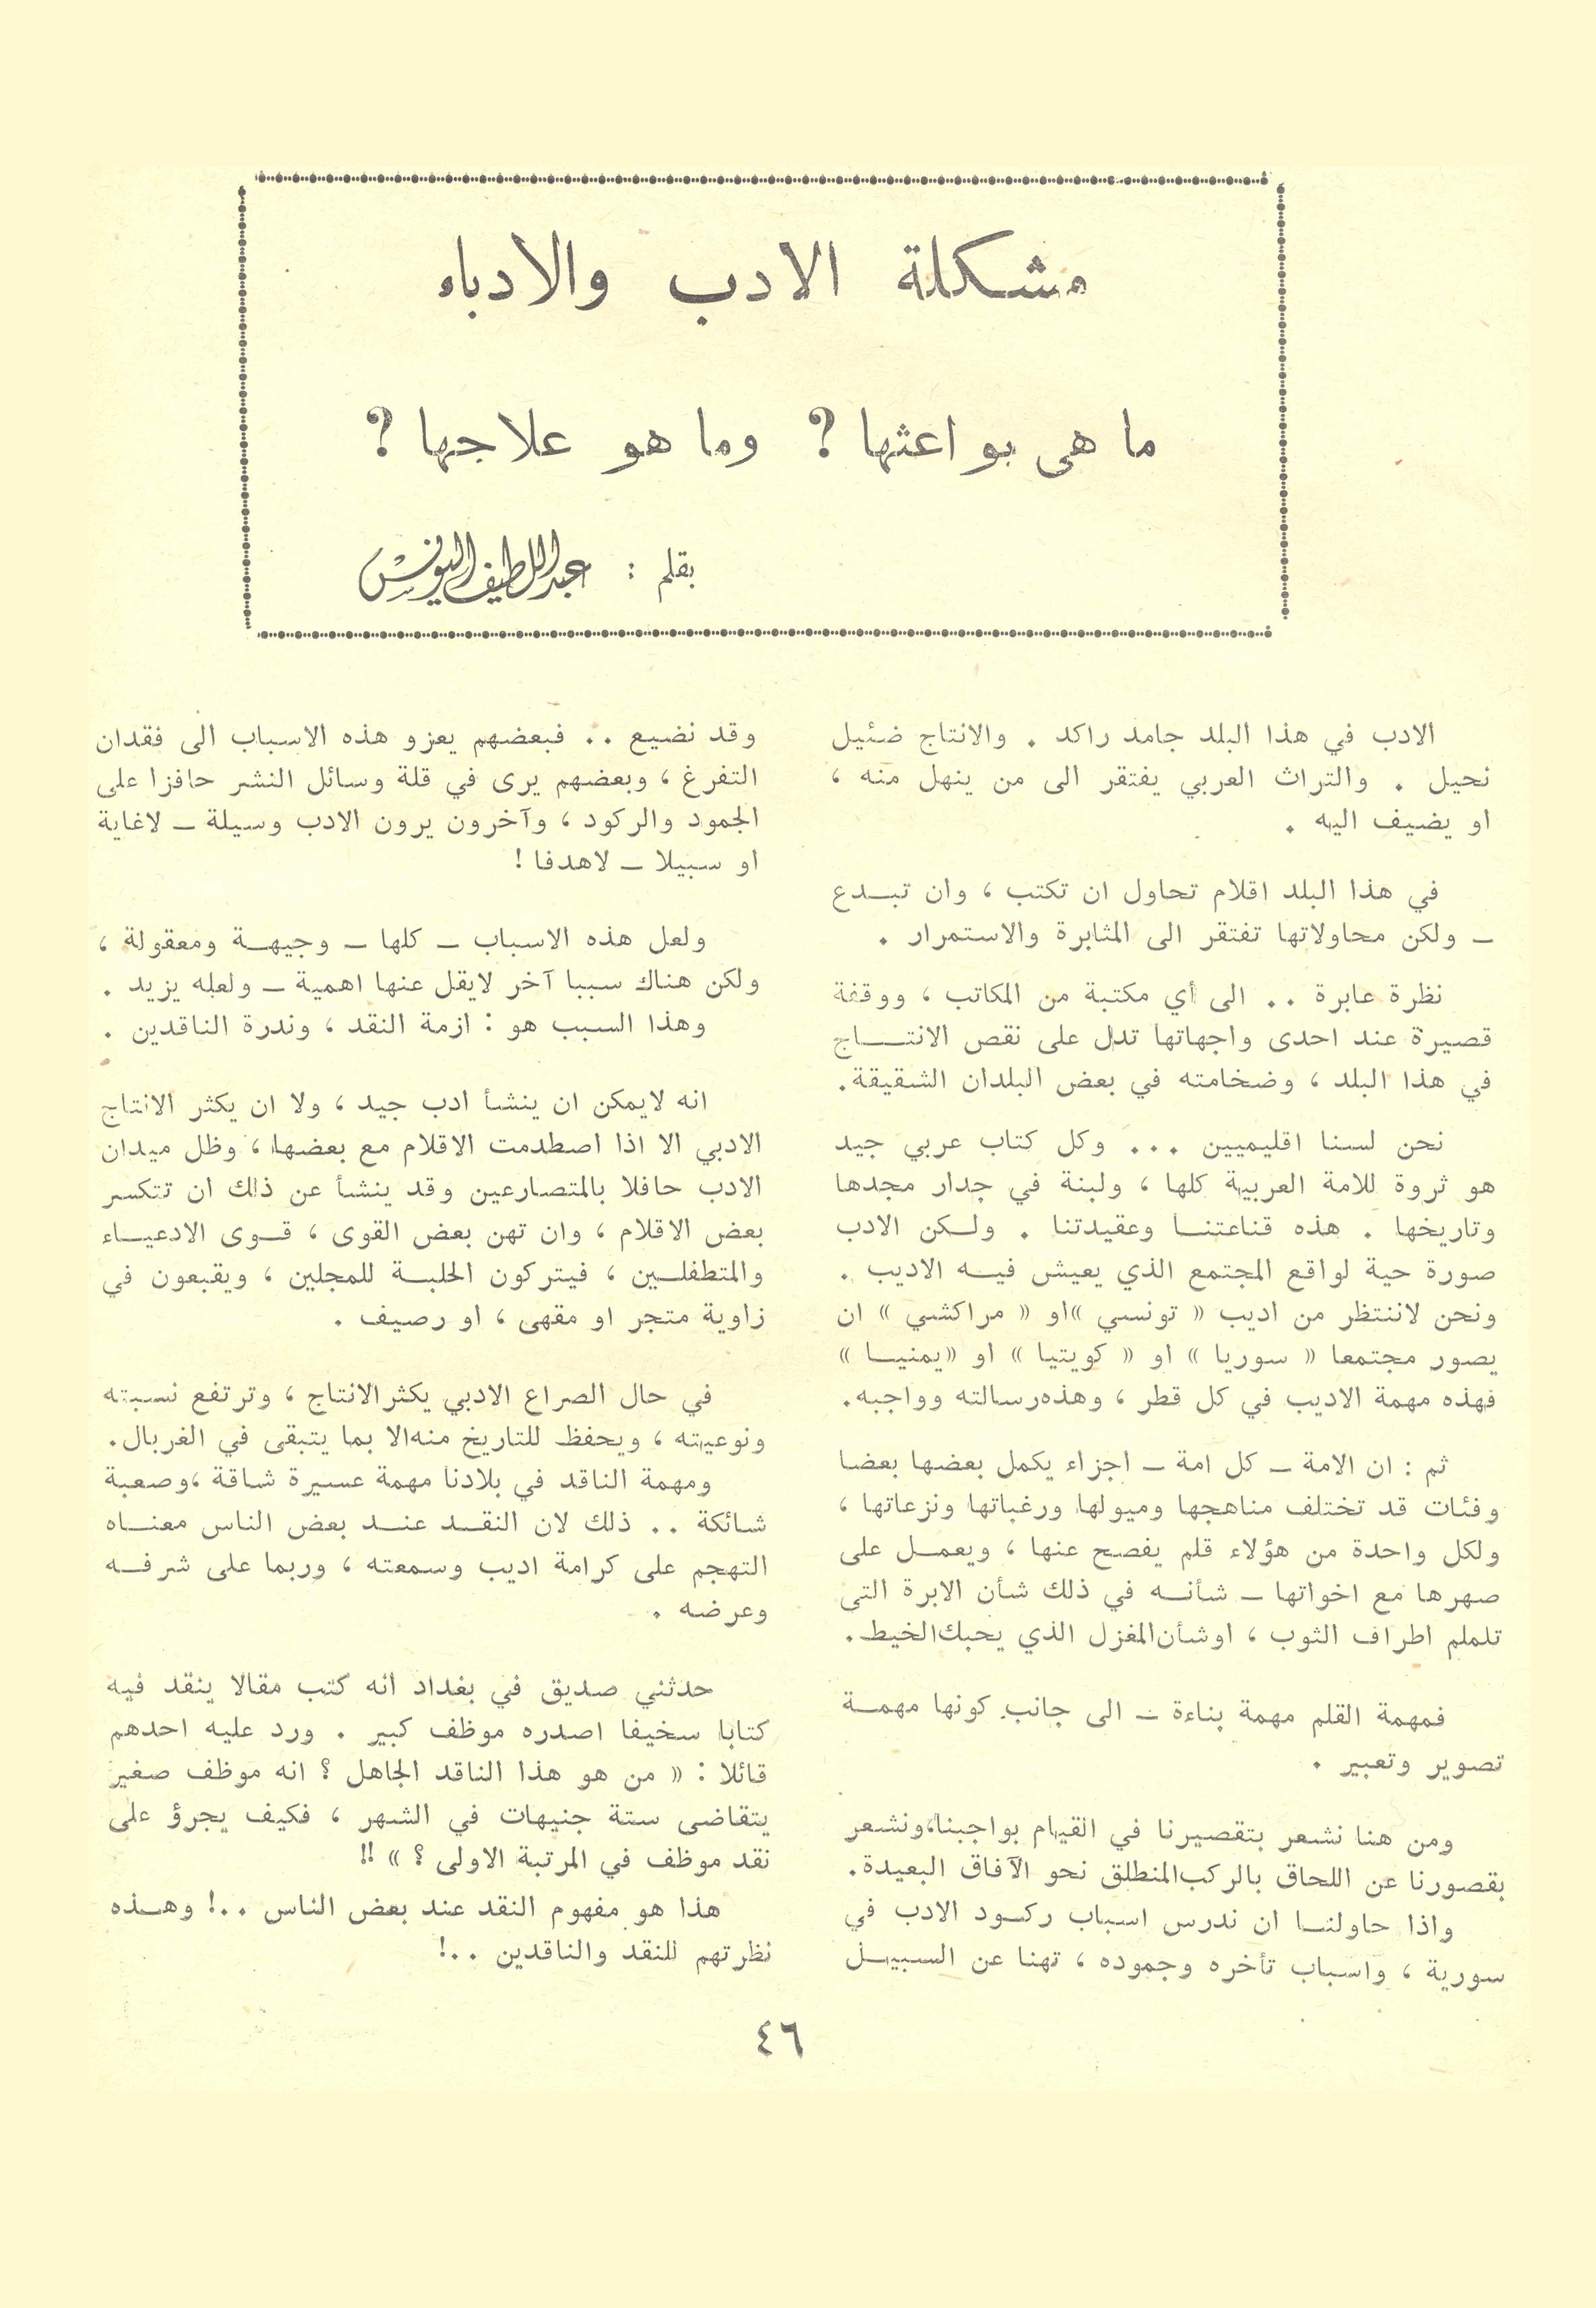 مشكلة الادب والادباء
ما هى بواعثها ? وما هو علاجها ?
بقلم : عبد اللطيف اليونس
الادب في هذا البلد جامد راكد . والانتاج ضئيل
نحيل . والتراث العربي يفتقر الى من ينهل منه ،
او يضيف اليه .
في هذا البلد اقلام تحاول ان تكتب ، وان تبدع
ــ ولكن محاولاتها تفتقر الى المثابرة والاستمرار .
نظرة عابرة .. الى أي مكتبة من المكاتب ، ووقفة
قصيرة عند احدى واجهاتها تدل على نقص الانتاج
في هذا البلد ، وضخامته في بعض البلدان الشقيقة.
نحن لسنا اقليميين ... وكل كتاب عربي جيد
هو ثروة للامة العربية كلها ، ولبنة في جدار مجدها
وتاريخها . هذه قناعتنا وعقيدتنا . ولكن الادب
صورة حية لواقع المجتمع الذي يعيش فيه الاديب .
ونحن لاننتظر من اديب « تونسي »او « مراكشي » ان
يصور مجتمعا « سوريا » او « كويتيا » او «يمنيا »
فهذه مهمة الاديب في كل قطر ، وهذه رسالته وواجبه.
ثم : ان الامة ــ كل امة ــ اجزاء يكمل بعضها بعضا
وفئات قد تختلف مناهجها وميولها ورغباتها ونزعاتها ،
ولكل واحدة من هؤلاء قلم يفصح عنها ، ويعمل على
صهرها مع اخواتها ــ شأنه في ذلك شأن الابرة التى
تلملم اطراف الثوب ، اوشأن المغزل الذي يحبك الخيط.
فمهمة القلم مهمة بناءة ــ الى جانب كونها مهمة
تصوير وتعبير .
ومن هنا نشعر بتقصيرنا في القيام بواجبنا،ونشعر
بقصورنا عن اللحاق بالركب المنطلق نحو الآفاق البعيدة.
واذا حاولنا ان ندرس اسباب ركود الادب في
سورية ، واسباب تأخره وجموده ، تهنا عن السبيل
وقد نضيع .. فبعضهم يعزو هذه الاسباب الى فقدان
التفرغ ، وبعضهم يرى في قلة وسائل النشر حافزا على
الجمود والركود ، وآخرون يرون الادب وسيلة ــ لاغاية
او سبيلا ــ لاهدفا !
ولعل هذه الاسباب ــ كلها ــ وجيهة ومعقولة ،
ولكن هناك سببا آخر لايقل عنها اهمية ــ ولعله يزيد .
وهذا السبب هو : ازمة النقد ، وندرة الناقدين .
انه لايمكن ان ينشأ ادب جيد ، ولا ان يكثر الانتاج
الادبي الا اذا اصطدمت الاقلام مع بعضها ، وظل ميدان
الادب حافلا بالمتصارعين وقد ينشأ عن ذلك ان تتكسر
بعض الاقلام ، وان تهن بعض القوى ، قوى الادعياء
والمتطفلين ، فيتركون الحلبة للمجلين ، ويقبعون في
زاوية متجر او مقهى ، او رصيف .
في حال الصراع الادبي يكثر الانتاج ، وترتفع نسبته
ونوعيته ، ويحفظ للتاريخ منه الا بما يتبقى في الغربال.
ومهمة الناقد في بلادنا مهمة عسيرة شاقة ،وصعبة
شائكة .. ذلك لان النقد عند بعض الناس معناه
التهجم على كرامة اديب وسمعته ، وربما على شرفه
وعرضه .
حدثني صديق في بغداد انه كتب مقالا ينقد فيه
كتابا سخيفا اصدره موظف كبير . ورد عليه احدهم
قائلا : « من هو هذا الناقد الجاهل ؟ انه موظف صغير
يتقاضى ستة جنيهات في الشهر ، فكيف يجرؤ على
نقد موظف في المرتبة الاولى ؟ » !!
هذا هو مفهوم النقد عند بعض الناس ..! وهذه
نظرتهم للنقد والناقدين ..!
٤٦